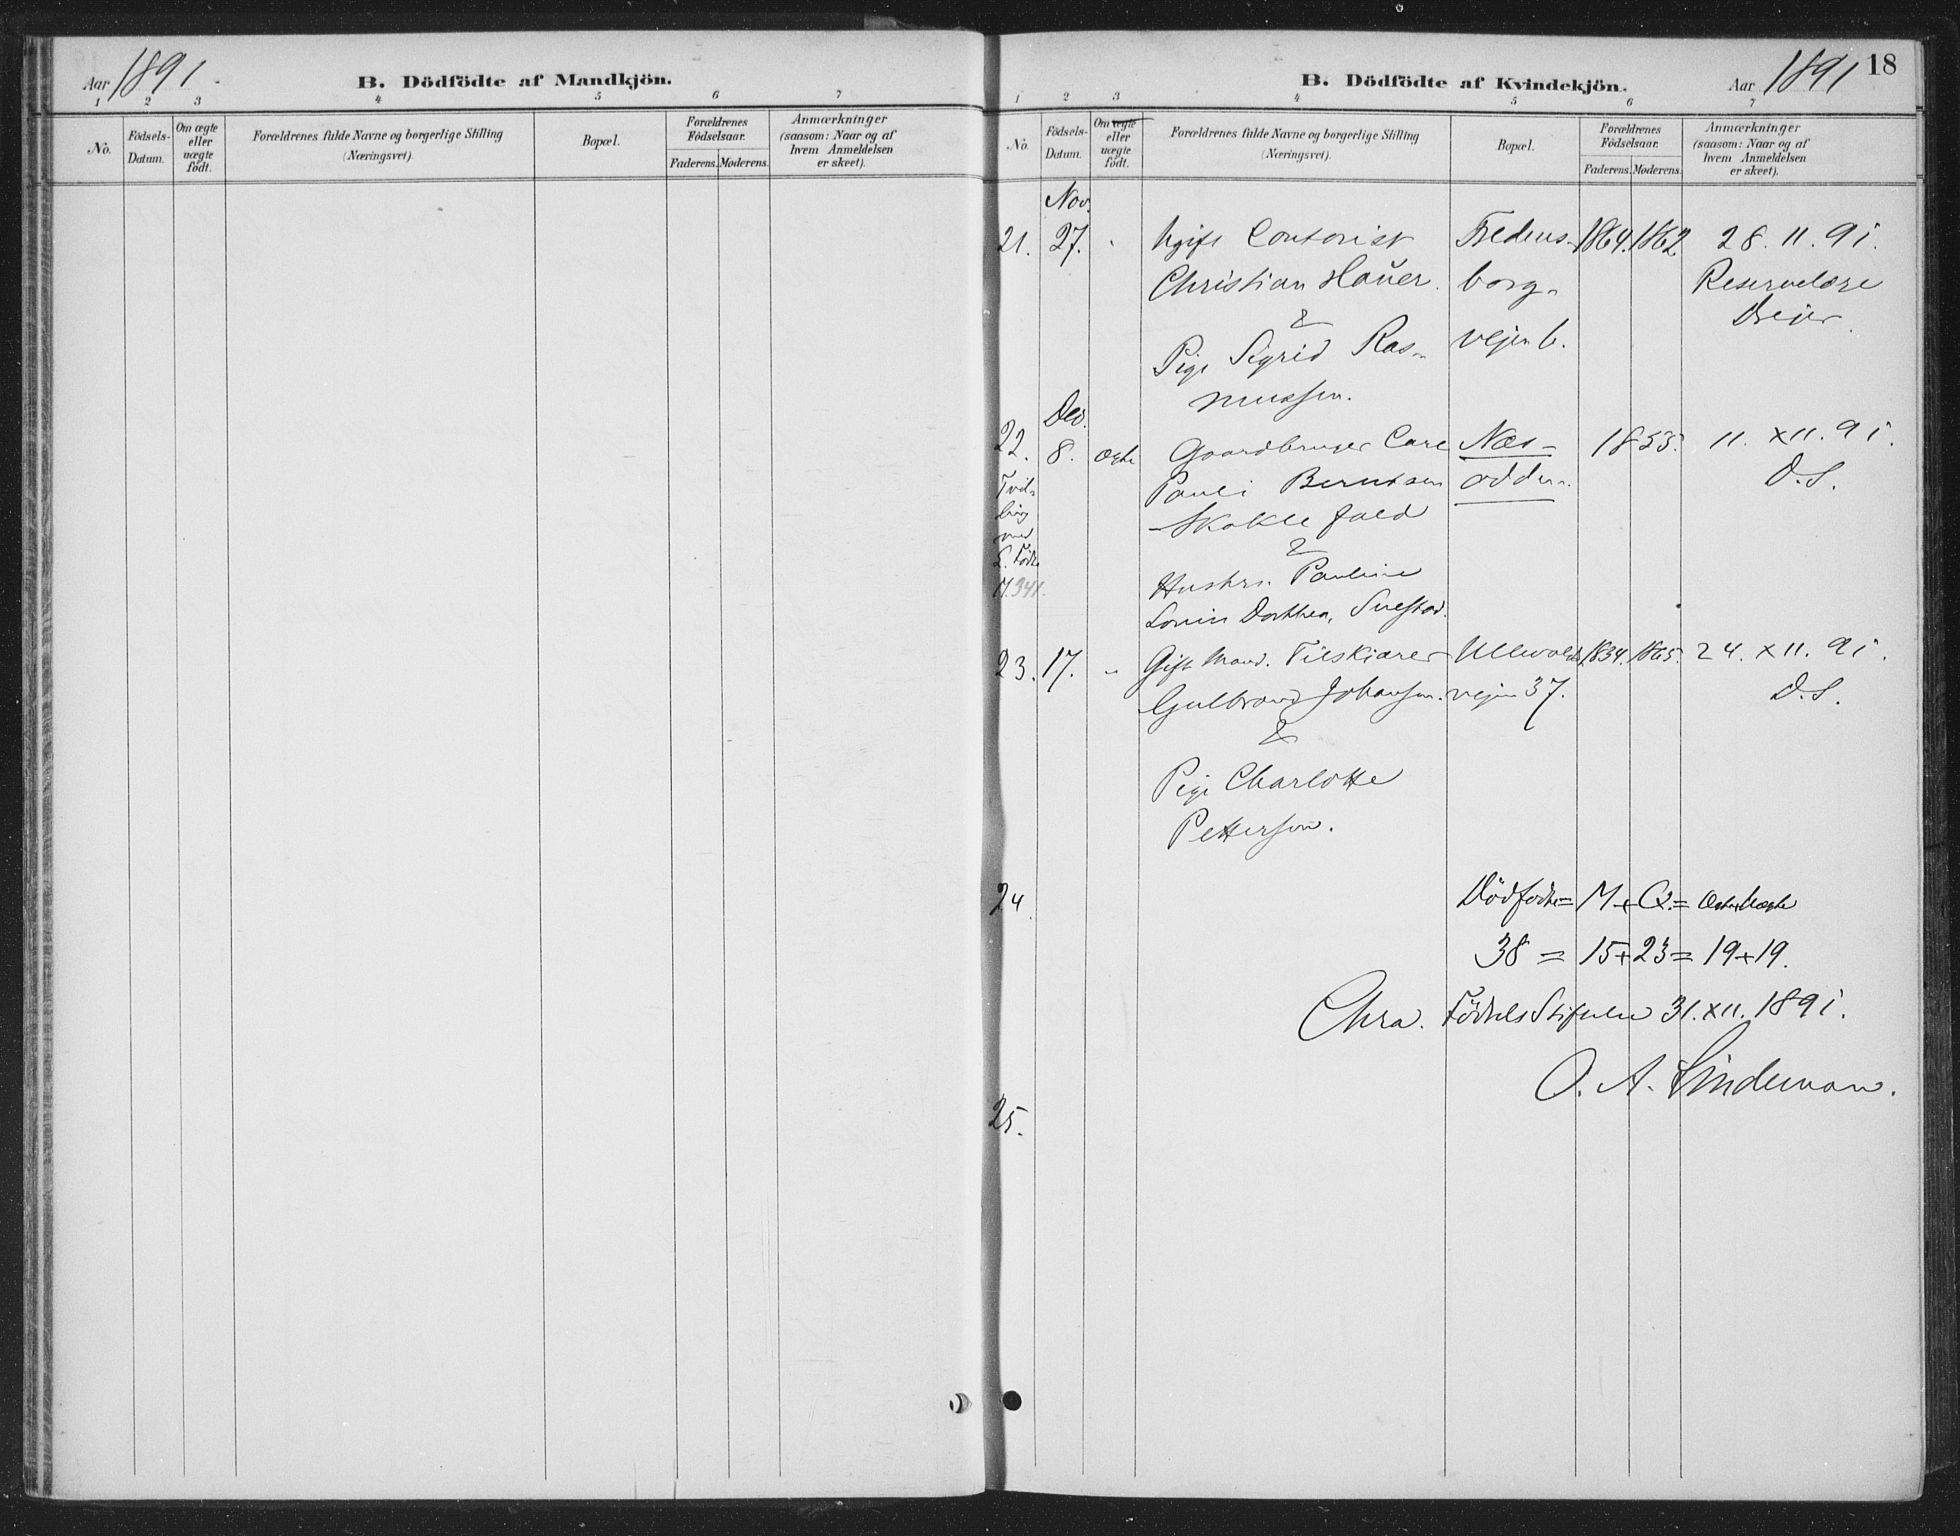 Aar 1891.
B. Dödfödte af Mandkjön.
1 2 3 4 5 6 7
No.
Födsels-
Datum.
Om ægte
eller
uægte
födt.
Forældrenes fulde Navne og borgerlige Stilling
(Næringsvei).
Bopæl.
Forældrenes
Födselsaar.
Faderens. Moderens.
Anmærkninger
(saasom: Naar og af
hvem Anmeldelsen
er skeet).
B. Dödfödte af Kvindekjön.
Aar 1891
18
1 2 3 4 5 6 7
No.
Födsels-
Datum.
Om ægte
eller
uægte
födt.
Forældrenes fulde Navne og borgerlige Stilling
(Næringsvei).
Bopæl.
Forældrenes
Födselsaar.
Faderens. Moderens.
Anmærkninger
(saasom: Naar og af
hvem Anmeldelsen
er skeet).
Nov.
21. 27. Ugift Contorist Fredens- 1864. 1862 28. 11. 91.
Christian Hauer. borg- Reservelæge
&
vejen 6.
Pige Sigrid Ras-
mussen.
Dec.
22. 8. ægte Gaardbruger Carl Næs- 1853. 11. XII. 91.
Tvil-
ling
med
L. Födte
M.341.
Pauli Berntsen odden. D.S.
Skoklefald
&
Hustru Pauline
Dorthea
23. 17. " Gift Mand. Filskiærer Ullevolds 1834. 1865. 24. XII. 91.
Gulbrand Johansen. vejen 37. D.S.
&
Pige Charlotte
Petterson.
24.
Dödfödte = M + Q. = Ægte + Uægte
38 = 15 + 23 = 19 + 19.
Chra. Födsels Stiftelse 31. XII. 1891.
O. A. Lindeman.
25.